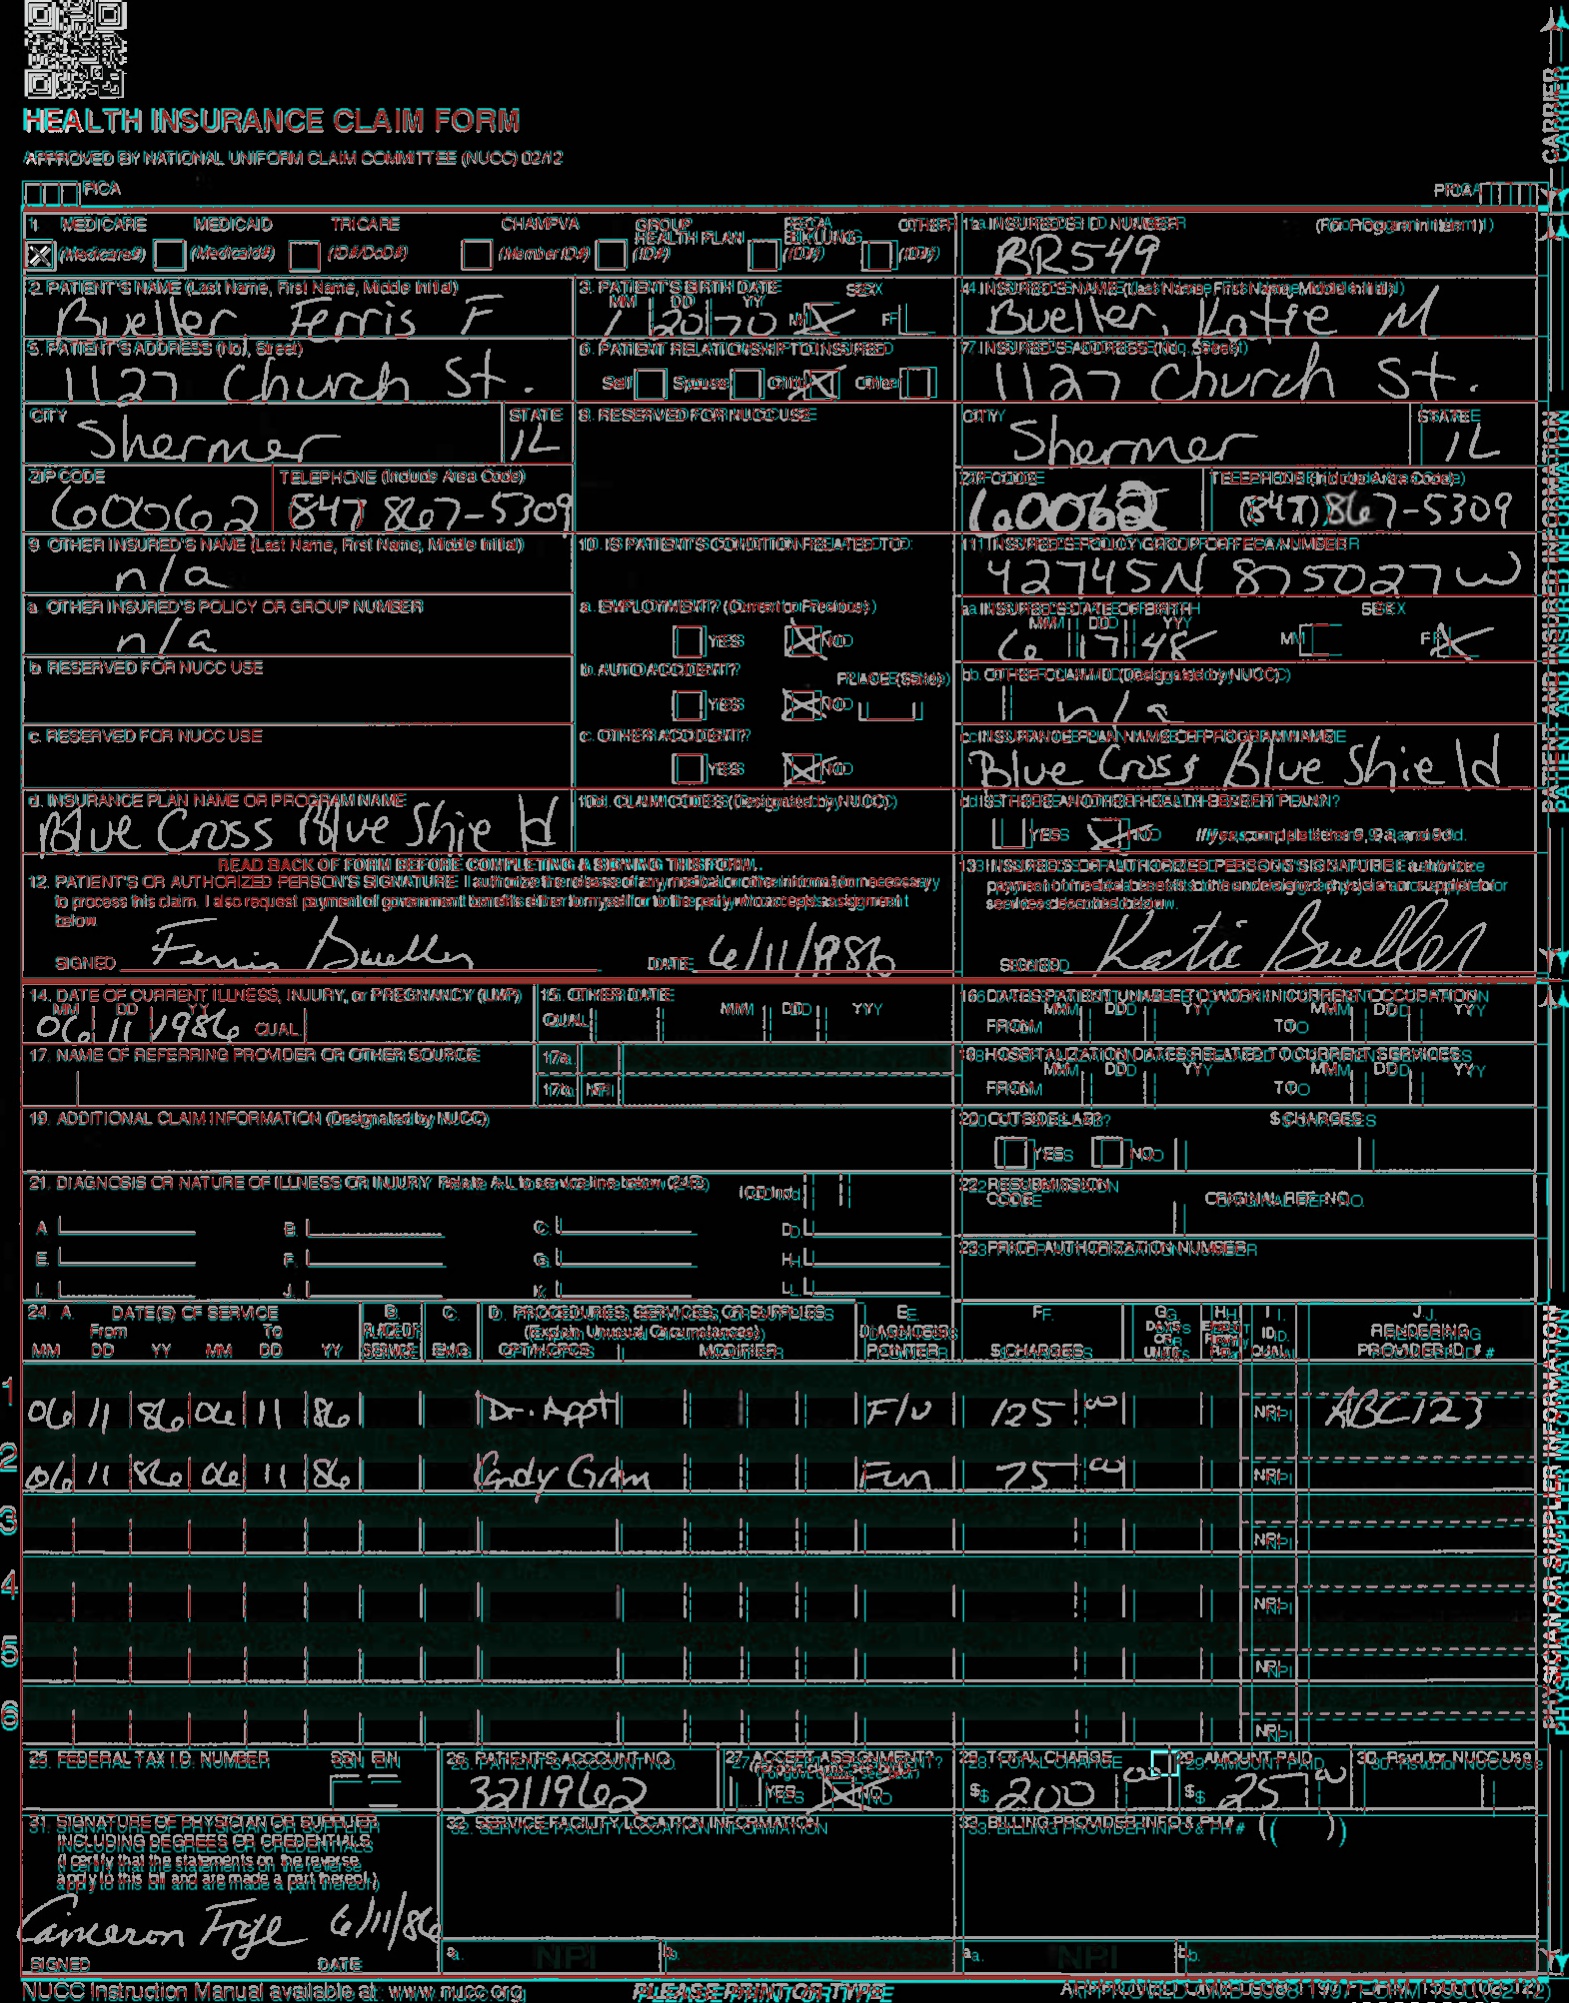 HEALTH INSURANCE CLAIM FORM
APPROVED BY NATIONAL UNIFORM CLAIM COMMITTEE (NUCC) 02/12
CARRIER
PICA PICA
1. MEDICARE MEDICAID TRICARE CHAMPVA GROUP HEALTH PLAN FECA BLK LUNG OTHER
(Medicare#) (Medicaid#) (ID#/DoD#) (Member ID#) (ID#) (ID#) (ID#)
1a. INSURED'S I.D. NUMBER (For Program in Item 1)
BR549
2. PATIENT'S NAME (Last Name, First Name, Middle Initial)
Bueller, Ferris F
3. PATIENT'S BIRTH DATE SEX
MM DD YY
1 20 70 M X F
4. INSURED'S NAME (Last Name, First Name, Middle Initial)
Bueller, Katie M
5. PATIENT'S ADDRESS (No., Street)
1127 Church St.
6. PATIENT RELATIONSHIP TO INSURED
Self Spouse Child X Other
7. INSURED'S ADDRESS (No., Street)
1127 Church St.
CITY STATE
Shermer IL
8. RESERVED FOR NUCC USE
CITY STATE
Shermer IL
ZIP CODE TELEPHONE (Include Area Code)
60062 (847) 867-5309
ZIP CODE TELEPHONE (Include Area Code)
60062 (847) 867-5309
9. OTHER INSURED'S NAME (Last Name, First Name, Middle Initial)
n/a
10. IS PATIENT'S CONDITION RELATED TO:
11. INSURED'S POLICY GROUP OR FECA NUMBER
42745N 875027W
a. OTHER INSURED'S POLICY OR GROUP NUMBER
n/a
a. EMPLOYMENT? (Current or Previous)
YES X NO
a. INSURED'S DATE OF BIRTH SEX
MM DD YY
6 17 48 M F X
b. RESERVED FOR NUCC USE
b. AUTO ACCIDENT? PLACE (State)
YES X NO
b. OTHER CLAIM ID (Designated by NUCC)
n/a
c. RESERVED FOR NUCC USE
c. OTHER ACCIDENT?
YES X NO
c. INSURANCE PLAN NAME OR PROGRAM NAME
Blue Cross Blue Shield
d. INSURANCE PLAN NAME OR PROGRAM NAME
Blue Cross Blue Shield
10d. CLAIM CODES (Designated by NUCC)
d. IS THERE ANOTHER HEALTH BENEFIT PLAN?
YES X NO If yes, complete items 9, 9a, and 9d.
READ BACK OF FORM BEFORE COMPLETING & SIGNING THIS FORM.
12. PATIENT'S OR AUTHORIZED PERSON'S SIGNATURE I authorize the release of any medical or other information necessary
to process this claim. I also request payment of government benefits either to myself or to the party who accepts assignment
below.
SIGNED Ferris Bueller DATE 6/11/1986
13. INSURED'S OR AUTHORIZED PERSON'S SIGNATURE I authorize
payment of medical benefits to the undersigned physician or supplier for
services described below.
SIGNED Katie Bueller
PATIENT AND INSURED INFORMATION
14. DATE OF CURRENT ILLNESS, INJURY, or PREGNANCY (LMP)
MM DD YY
06 11 1986 QUAL.
15. OTHER DATE
QUAL. MM DD YY
16. DATES PATIENT UNABLE TO WORK IN CURRENT OCCUPATION
MM DD YY MM DD YY
FROM TO
17. NAME OF REFERRING PROVIDER OR OTHER SOURCE
17a.
17b. NPI
18. HOSPITALIZATION DATES RELATED TO CURRENT SERVICES
MM DD YY MM DD YY
FROM TO
19. ADDITIONAL CLAIM INFORMATION (Designated by NUCC)
20. OUTSIDE LAB? $ CHARGES
YES NO
21. DIAGNOSIS OR NATURE OF ILLNESS OR INJURY Relate A-L to service line below (24E) ICD Ind.
A. B. C. D.
E. F. G. H.
I. J. K. L.
22. RESUBMISSION CODE ORIGINAL REF. NO.
23. PRIOR AUTHORIZATION NUMBER
24. A. DATE(S) OF SERVICE B. C. D. PROCEDURES, SERVICES, OR SUPPLIES E. F. G. H. I. J.
From To PLACE OF (Explain Unusual Circumstances) DIAGNOSIS DAYS OR EPSDT ID. RENDERING
MM DD YY MM DD YY SERVICE EMG CPT/HCPCS MODIFIER POINTER $ CHARGES UNITS QUAL. PROVIDER ID. #
1 06 11 86 06 11 86 Dr. Appt F/U 125 00 NPI ABC123
2 06 11 86 06 11 86 Candy Gram Fun 75 00 NPI
3 NPI
4 NPI
5 NPI
6 NPI
PHYSICIAN OR SUPPLIER INFORMATION
25. FEDERAL TAX I.D. NUMBER SSN EIN
26. PATIENT'S ACCOUNT NO.
3211962
27. ACCEPT ASSIGNMENT?
(For govt. claims, see back)
YES X NO
28. TOTAL CHARGE
$ 200 00
29. AMOUNT PAID
$ 25 00
30. Rsvd for NUCC Use
31. SIGNATURE OF PHYSICIAN OR SUPPLIER
INCLUDING DEGREES OR CREDENTIALS
(I certify that the statements on the reverse
apply to this bill and are made a part thereof.)
Cameron Frye 6/11/86
SIGNED DATE
32. SERVICE FACILITY LOCATION INFORMATION
a. NPI b.
33. BILLING PROVIDER INFO & PH # ( )
a. NPI b.
NUCC Instruction Manual available at: www.nucc.org
PLEASE PRINT OR TYPE